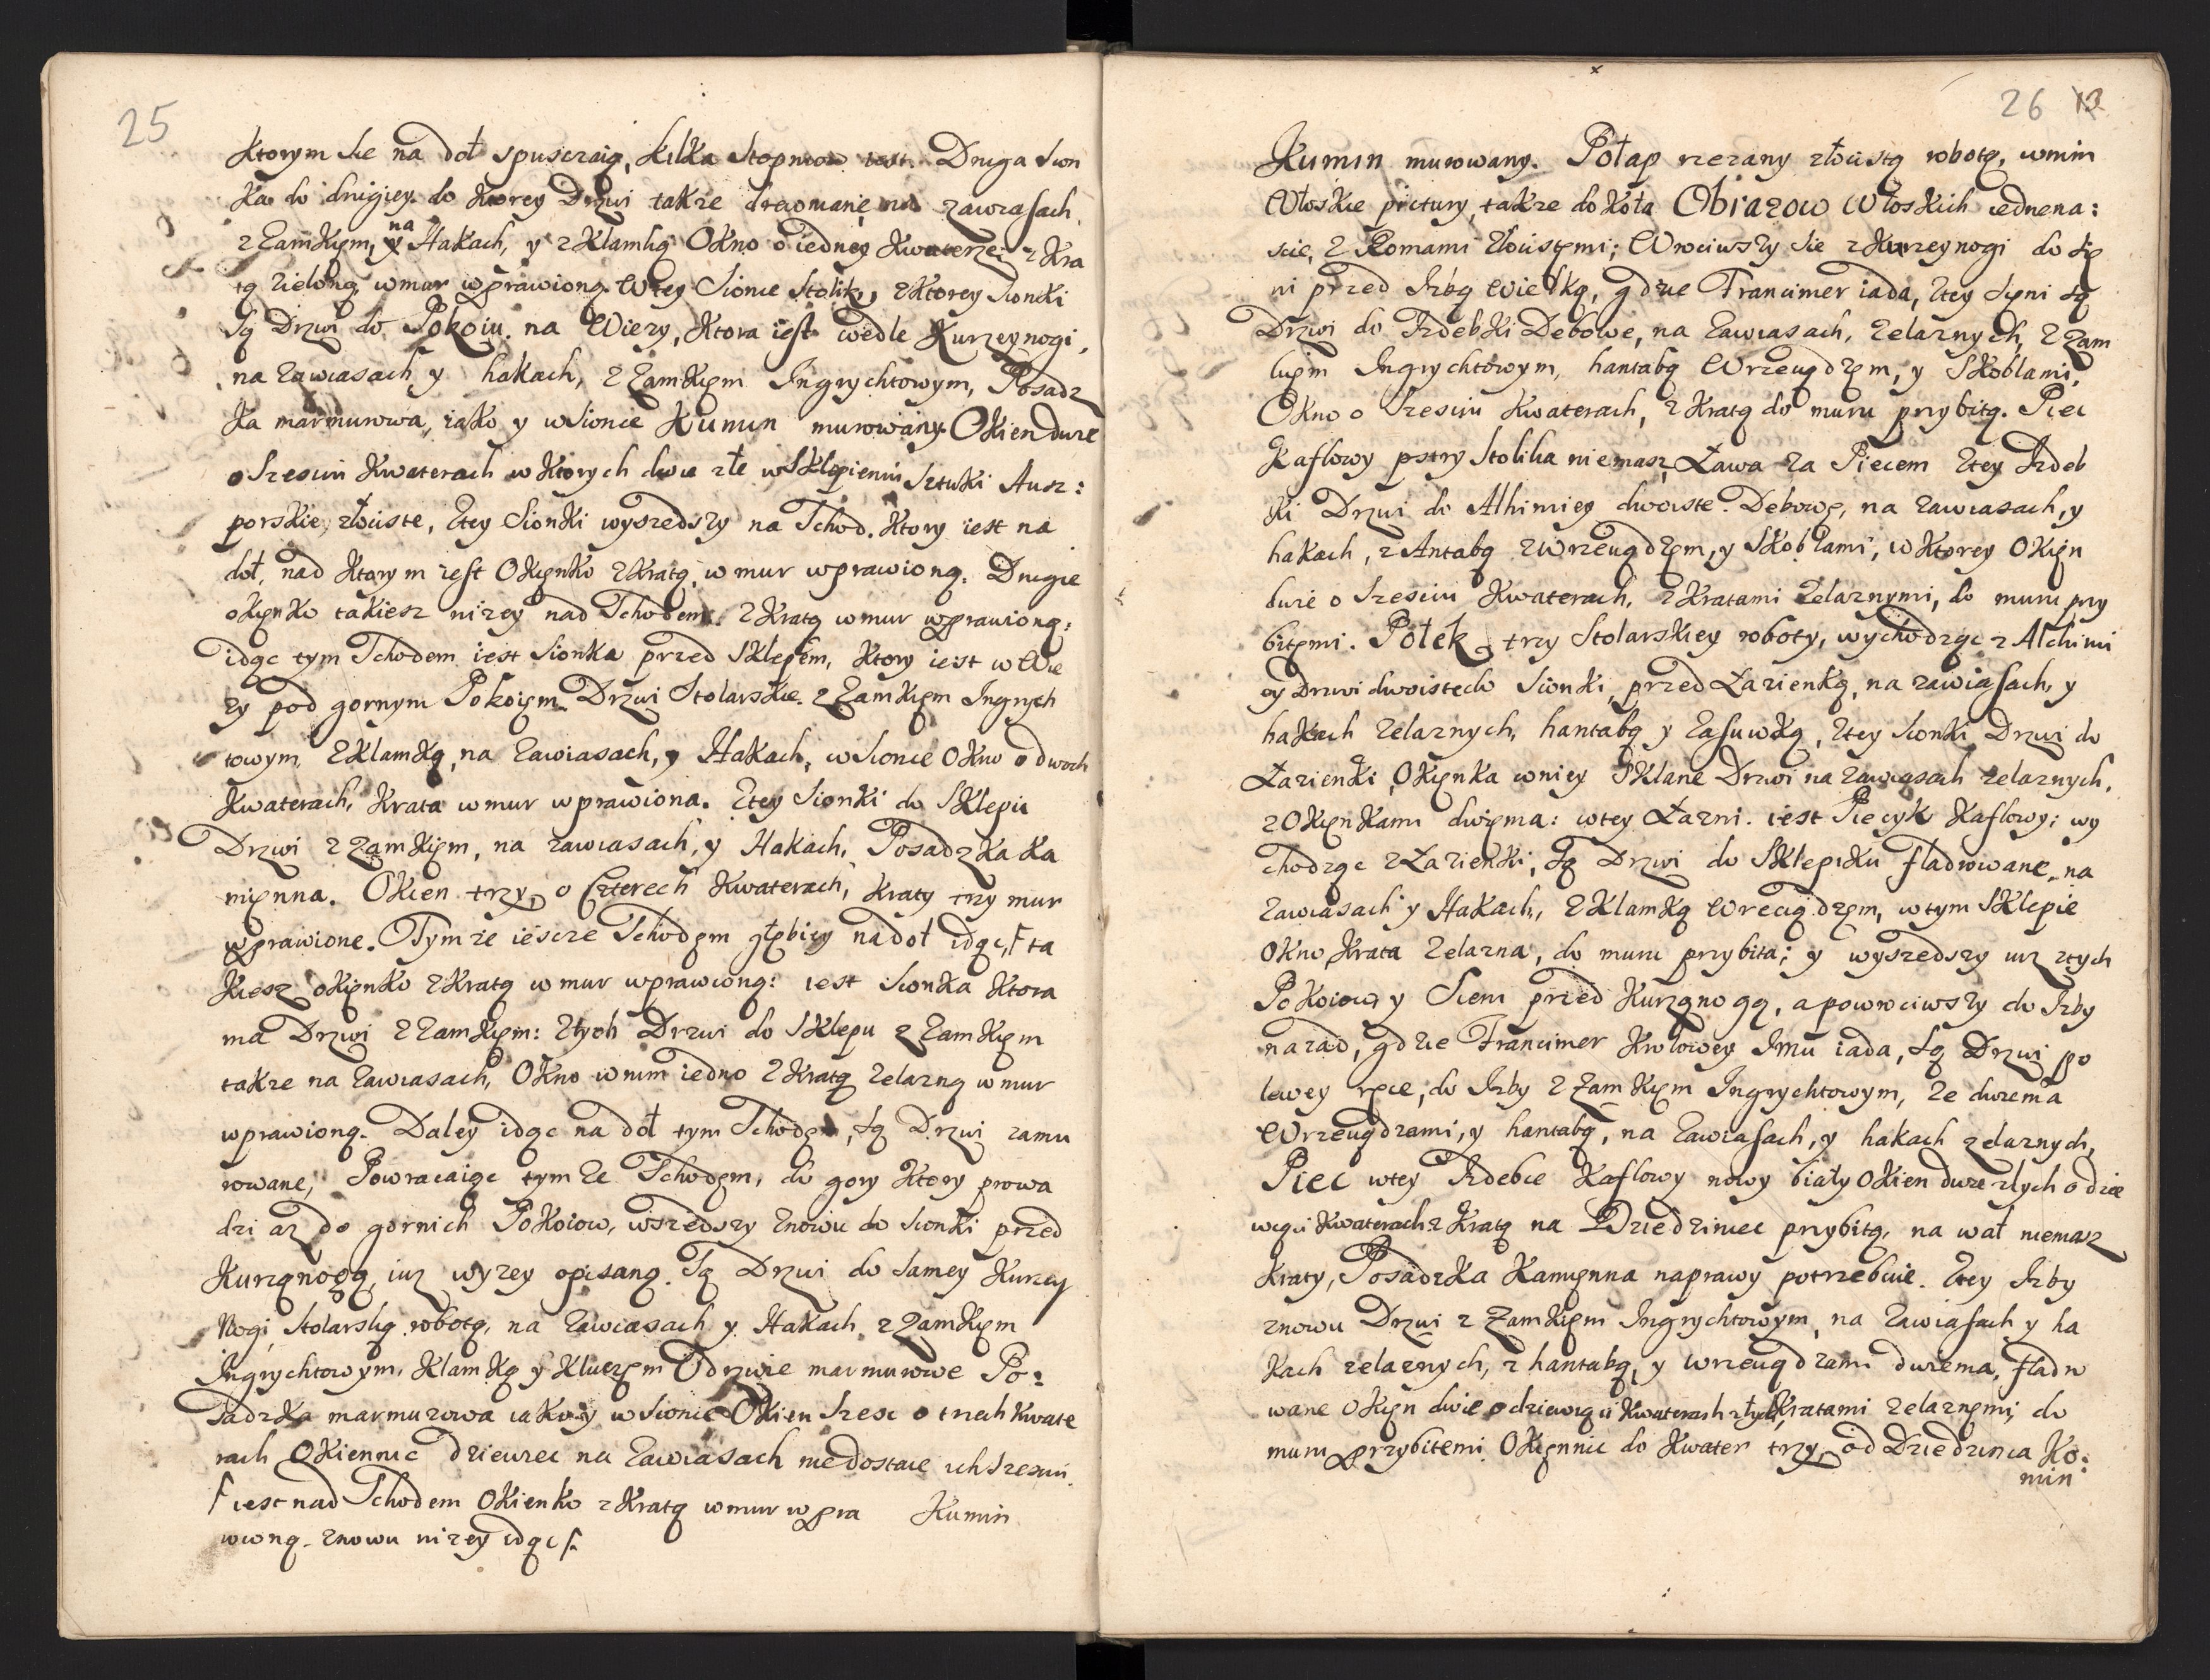 25
Ktorym sie na doł spuszcaią, kilka Stopniow iest. Druga sion
ka do drugiey do Ktorey Drzwi takze drewniane na zawiasach
z Zamkiem, y na Hakach, y z Klamką Okno o iedney Kwaterze z Kra
tą zieloną w mur wprawioną. W tey Sionce Stolik, z Ktorey Sionki
Są Drzwi do Pokoiu na Wiezy, Ktora iest wedle Kurzeynogi,
na Zawiasach y hakach, z Zamkiem Ingrychtowym, Posadz
ka marmurowa, iako y w Sionce Kumin murowany Okien dwie
o Szesciu Kwaterach w Ktorych dwie złe w Sklepieniu Sztuki Ausz:
porskie złociste, Z tey Sionki wyszedszy na Schod. Ktory iest na
doł, nad Ktorym iest Okienko z Kratą, w mur wprawioną. Drugie
okienko takiesz nizey nad Schodem z Kratą w mur wprawioną:
idąc tym Schodem iest Sionka przed Sklepem, Ktory iest w Wie
zy pod gornym Pokoiem Drzwi Stolarskie z Zamkiem Ingrych
towym z Klamką, na Zawiasach, y Hakach, w Sionce Okno o dwoch
Kwaterach, Krata w mur wprawiona. Z tey Sionki do Sklepu
Drzwi z Zamkiem, na zawiasach, y Hakach, Posadzka Ka
mienna. Okien trzy, o Czterech Kwaterach, Kraty trzy mur
wprawione. Tymze iescze Schodem głębiey nadoł idąc, ſ ta
kiesz okienko z Kratą w mur wprawioną: iest Sionka Ktora
ma Drzwi z Zamkiem: Z tych Drzwi do Sklepu z Zamkiem
takze na Zawiasach, Okno w nim iedno z Kratą zelazną w mur
wprawioną. Daley idąc na doł tym Schodem, są Drzwi zamu
rowane, Powracaiąc tym ze Schodem, do gory Ktory prowa
dzi az do gornich Pokoiow, wszedszy znowu do Sionki przed
Kurząnogą, iuz wyzey opisaną. Są Drzwi do samey Kurzey
Nogi, Stolarską robotą, na Zawiasach y Hakach z Zamkiem
Ingrychtowym, Klamką y Kluczem Odrzwie marmurowe Po:
sadzka marmurowa iako y w Sionce Okien Szesc o trzech Kwate
rach Okiennic dziewiec na Zawiasach niedostaie ich Szesciu.
ſ iest nad Schodem Okienko z Kratą w mur wpra
wioną. znowu nizey idąc ſ.
Kumin
26 12
Kumin murowany. Połap rzezany złocistą robotą, w nim
Włoskie pictury, takze do koła Obrazow Włoskich iedena:
scie, z Romami złocistemi; Wrociwszy sie z Kurzeynogi do Sie
ni przed Izbą Wielką, gdzie Francimer iada, Z tey Sieni są
Drzwi do Izdebki Dębowe, na Zawiasach, zelaznych, z Zam
kiem Ingrychtowym, hantabą Wrzeciądzem, y Skoblami,
Okno o Szesciu Kwaterach, z Kratą do muru przybitą. Piec
Kaflowy pstry Stolika niemasz, Ława za Piecem Z tey Izdeb
ki Drzwi do Alhimiey dwoiste. Dębowe, na Zawiasach, y
hakach, z Antabą z Wrzeciądzem, y Skoblami, w Ktorey Okien
dwie o Szesciu Kwaterach, z Kratami zelaznymi, do muru przy
bitemi. Połek trzy Stolarskiey roboty, wychodząc z Alchimi
ey Drzwi dwoiste do Sionki, przed Łazienką, na zawiasach, y
hakach zelaznych, hantabą y Zasuwką, Z tey Sionki Drzwi do
Łazienki, Okienka w niey Sklane Drzwi na Zawiasach zelaznych,
z Okienkami dwiema: w tey Łazni. iest Piecyk Kaflowy: wy
chodząc z Łazienki, są Drzwi do Sklepiku fladrowane, na
Zawiasach y Hakach, z Klamką Wreciądzem, w tym Sklepie
Okno, Krata zelazna, do muru przybita; y wyszedszy iuz z tych
Pokoiow, y Sieni przed Kurząnogą, a powrociwszy do Izby
nazad, gdzie Francimer Krolowey Jmci iada, są Drzwi po
lewey ręce, do Izby z Zamkiem Ingrychtowym, ze dwiema
Wrzeciądzami, y hantabą, na Zawiasach, y hakach zelaznych,
Piec w tey Izdebce Kaflowy nowy biały Okien dwie złych o dzie
więciu Kwaterach z Kratą na Dziedziniec przybitą, na wał niemasz
Kraty, Posadzka Kamienna naprawy potrzebuie. Z tey Izby
znowu Drzwi z Zamkiem Ingrychtowym, na Zawiasach y ha
kach zelaznych, z hantabą, y wrzeciądzami dwiema, fladro
wane Okien dwie o dziewiąciu Kwaterach złych, Kratami zelaznemi, do
muru przybitemi Okiennic do Kwater trzy, od Dziedzinca Ko:
min